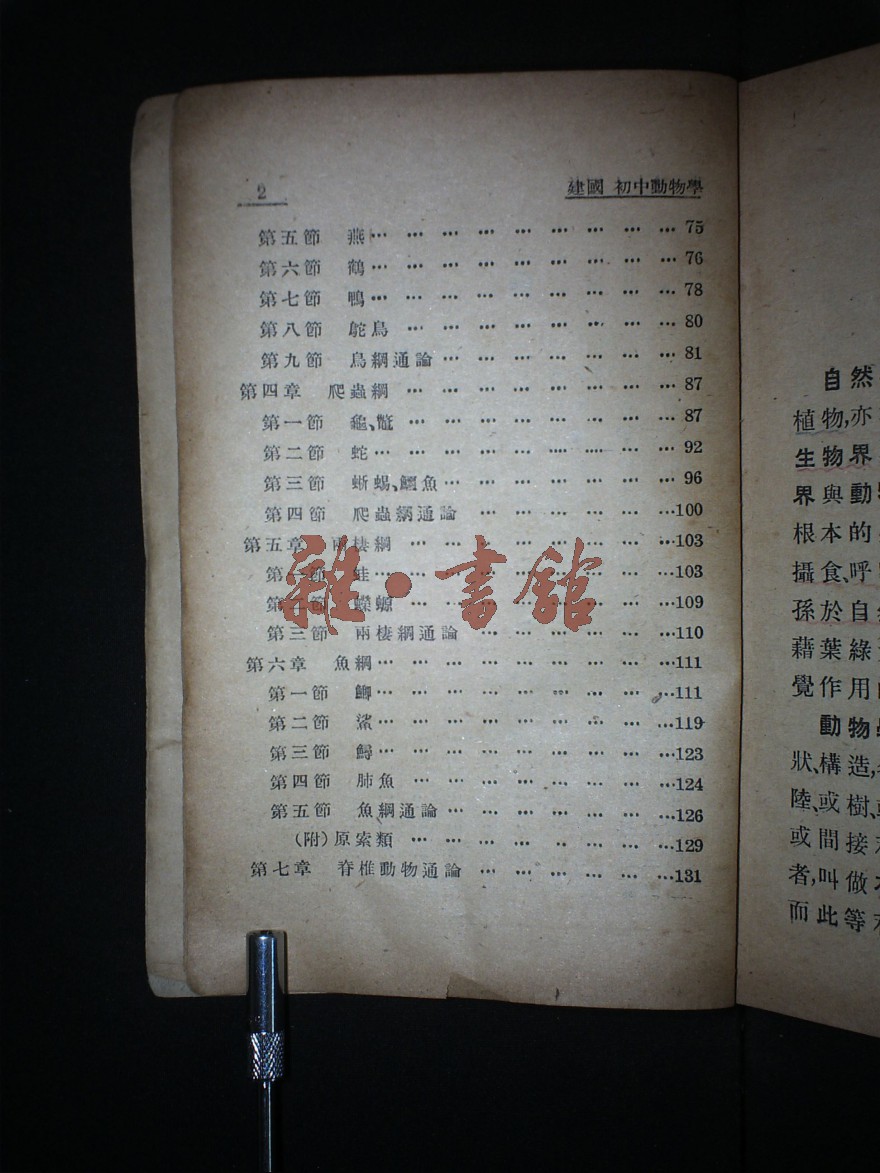 2
建國 初中動物學
第五節 燕… … … … … … … … … 75
第六節 鶴… … … … … … … … … 76
第七節 鴨… … … … … … … … … 78
第八節 鴕鳥 … … … … … … … … 80
第九節 鳥綱通論 … … … … … … … 81
第四章 爬蟲綱 … … … … … … … … 87
第一節 龜、鼈 … … … … … … … … 87
第二節 蛇… … … … … … … … … 92
第三節 蜥蜴、鱷魚… … … … … … … 96
第四節 爬蟲綱通論 … … … … … …100
第五章 兩棲綱 … … … … … … … …103
第一節 蛙… … … … … … … … …103
第二節 蠑螈 … … … … … … … …109
第三節 兩棲綱通論 … … … … … …110
第六章 魚綱… … … … … … … … …111
第一節 鯽… … … … … … … … …111
第二節 鯊… … … … … … … … …119
第三節 鱘… … … … … … … … …123
第四節 肺魚 … … … … … … … …124
第五節 魚綱通論… … … … … … …126
(附)原索類 … … … … … … … …129
第七章 脊椎動物通論 … … … … … …131
雜·書館
自然
植物,亦
生物界
界與動物
根本的
攝食、呼
孫於自然
藉葉綠
覺作用
動物
狀、構造,
陸、或樹、
或間接
者,叫做
而此等